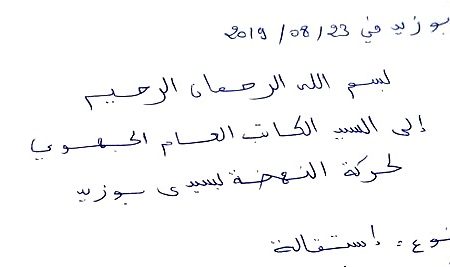 بوزيد في 23/08/2019
بسم الله الرحمان الرحيم
إلى السيد الكاتب العام الجهوي
لحركة النهضة بسيدي بوزيد
نوع: إستقالة